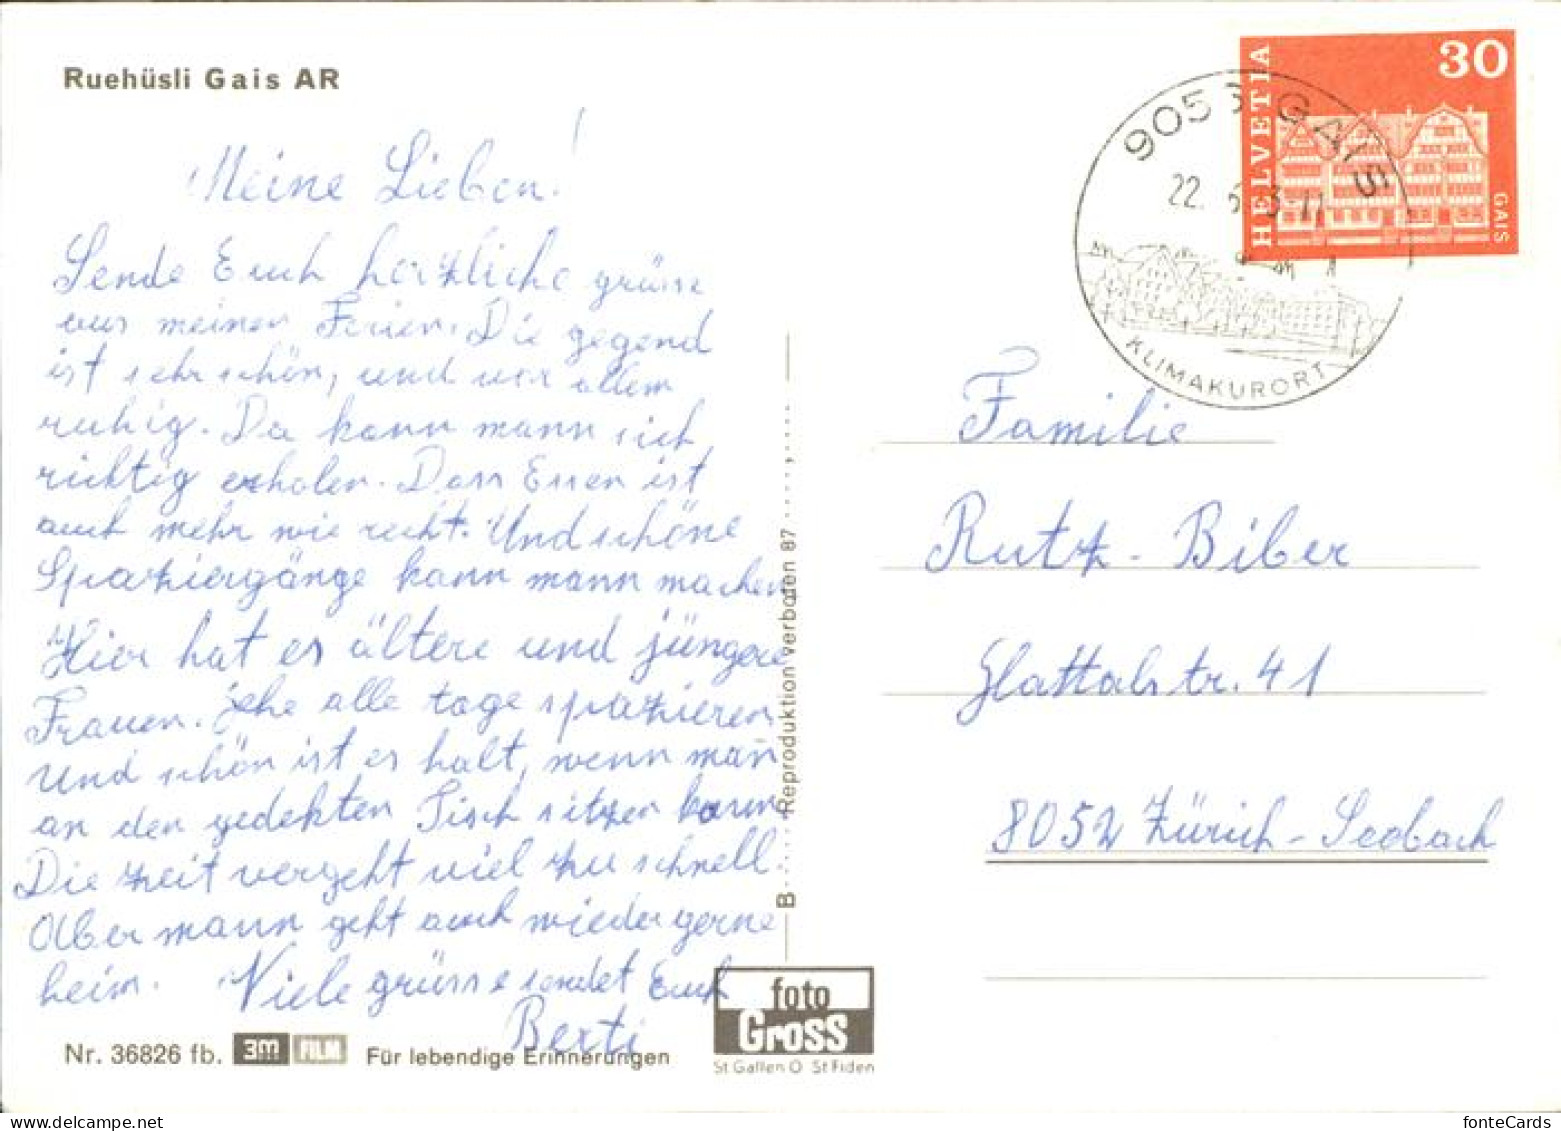 Ruehüsli Gais AR
Meine Lieben!
Sende Euch herzliche grüsse
aus meinen Ferien. Die gegend
ist sehr schön, und vor allem
ruhig. Da kann mann sich
richtig erholen. Dass Essen ist
auch mehr wie recht. Und schöne
Spaziergänge kann mann machen
Hier hat es ältere und jüngere
Frauen. gehe alle tage spazieren
Und schön ist es halt, wenn man
an den gedekten Tisch sitzen kann
Die zeit vergeht viel zu schnell.
Aber mann geht auch wieder gerne
heim. Viele grüsse sendet Euch
Berti
Nr. 36826 fb. 3m FILM Für lebendige Erinnerungen
B Reproduktion verboten 87
foto
Gross
St Gallen O St Fiden
HELVETIA
30
GAIS
9056 GAIS
22.
KLIMAKURORT
Familie
Rutz-Biber
Glattalstr. 41
8052 Zürich-Seebach
fonteCards